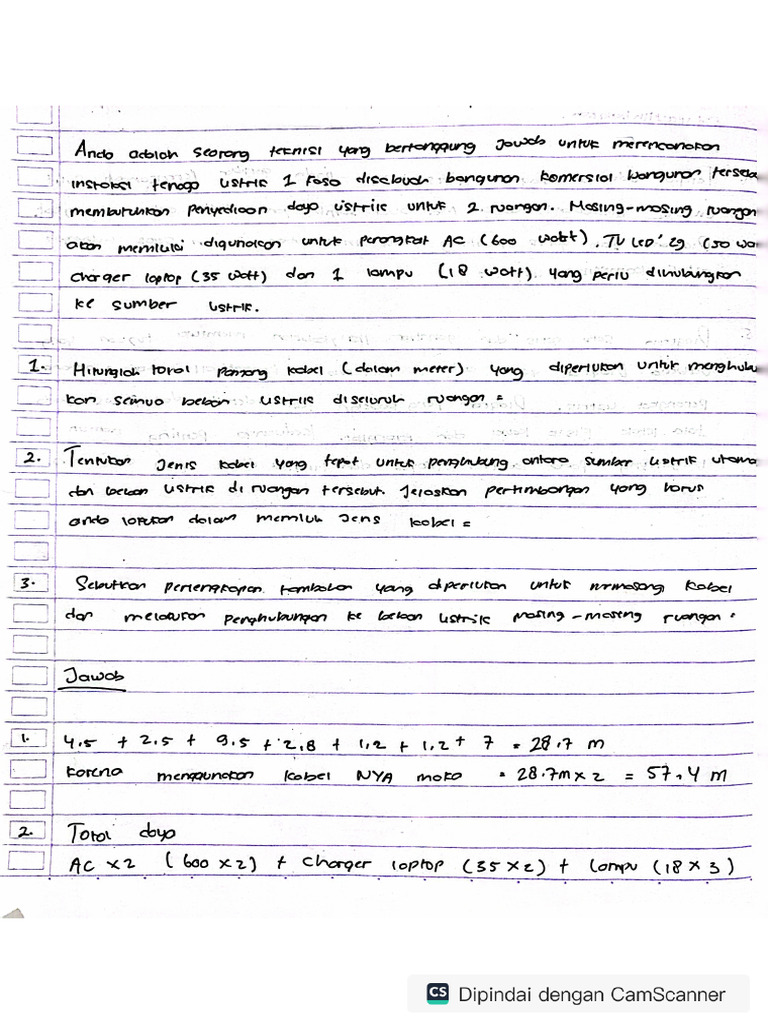 Anda adalah seorang teknisi yang bertanggung jawab untuk merencanakan
instalasi tenaga listrik 1 fasa disebuah bangunan komersial bangunan terseb
membutuhkan penyediaan daya listrik untuk 2 ruangan. Masing-masing ruangan
akan memiliki digunakan untuk perangkat AC (600 watt), TV LED 29 (50 wa
charger laptop (35 watt) dan 1 lampu (18 watt) yang perlu dihubungkan
ke sumber listrik.
1. Hitunglah total panjang kabel (dalam meter) yang diperlukan untuk menghubu
kan semua beban listrik diseluruh ruangan =
2. Tentukan jenis kabel yang tepat untuk penghubung antara sumber listrik utama
dan beban listrik di ruangan tersebut. Jelaskan pertimbangan yang harus
anda lakukan dalam memilih jenis kabel =
3. Sebutkan perlengkapan tambahan yang diperlukan untuk memasang kabel
dan melakukan penghubungan ke beban listrik masing-masing ruangan =
Jawab
1. 4.5 + 2.5 + 9.5 + 2,8 + 1,2 + 1,2 + 7 = 28.7 m
karena menggunakan kabel NYA maka = 28.7m x 2 = 57,4 m
2. Total daya
AC x2 (600 x 2) + Charger laptop (35 x 2) + lampu (18 x 3)
CS Dipindai dengan CamScanner